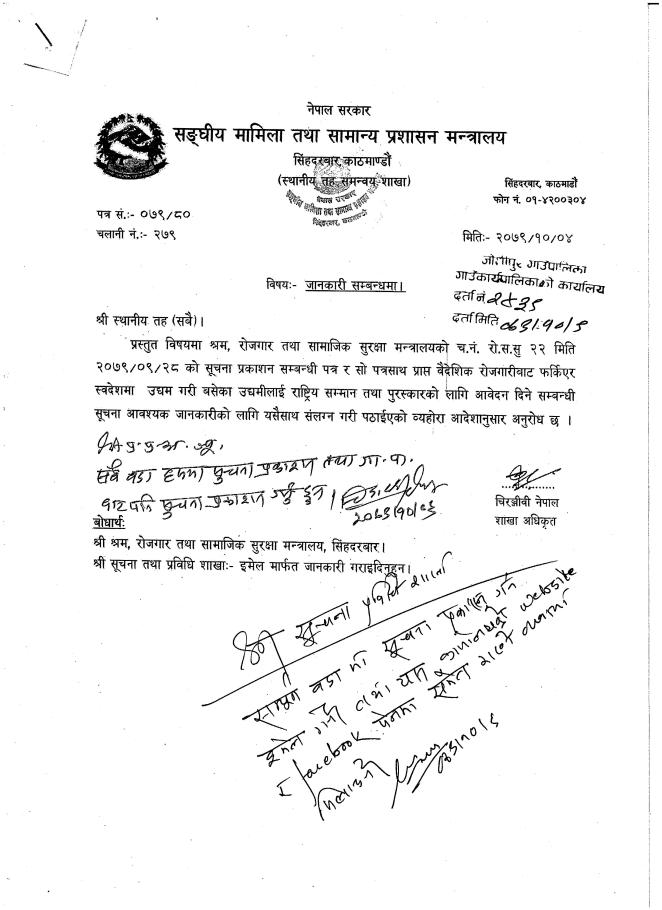 नेपाल सरकार
सङ्घीय मामिला तथा सामान्य प्रशासन मन्त्रालय
सिंहदरबार, काठमाण्डौं
(स्थानीय तह समन्वय शाखा)
नेपाल सरकार
सिंहदरबार, काठमाडौं
सिंहदरबार, काठमाडौं
फोन नं. ०१-४२००३०४
पत्र सं.:- ०७९/८०
चलानी नं.:- २७९
मिति:- २०७९/१०/०४
गाउँपालिका
गाउँकार्यपालिकाको कार्यालय
दर्ता नं
दर्ता मिति
विषय:- जानकारी सम्बन्धमा।
श्री स्थानीय तह (सबै)।
प्रस्तुत विषयमा श्रम, रोजगार तथा सामाजिक सुरक्षा मन्त्रालयको च.नं. रो.स.सु २२ मिति
२०७९/०९/२८ को सूचना प्रकाशन सम्बन्धी पत्र र सो पत्रसाथ प्राप्त बैदेशिक रोजगारीवाट फर्किएर
स्वदेशमा उद्यम गरी बसेका उद्यमीलाई राष्ट्रिय सम्मान तथा पुरस्कारको लागि आवेदन दिने सम्बन्धी
सूचना आवश्यक जानकारीको लागि यसैसाथ संलग्न गरी पठाईएको व्यहोरा आदेशानुसार अनुरोध छ ।
सबै वडा सूचना प्रकाशन तथा गा.पा.
सूचना प्रकाशन गर्नु हुन ।
चिरञ्जीवी नेपाल
शाखा अधिकृत
बोधार्थ:
श्री श्रम, रोजगार तथा सामाजिक सुरक्षा मन्त्रालय, सिंहदरबार।
श्री सूचना तथा प्रविधि शाखा:- इमेल मार्फत जानकारी गराइदिनुहुन।
श्री सूचना प्रविधि शाखा
सम्पूर्ण वडा मा सूचना प्रकाशन गर्न
इमेल गर्ने तथा यस website
र facebook पेजमा समेत राख्ने व्यवस्था
मिलाउने